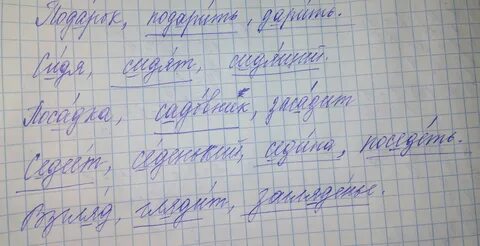 Подарок, подарить, дарить.
Сидя, сидят, сидящий.
Посадка, садовник, засадит
Седеет, седенький, седина, поседеть.
Взгляд, глядит, загляденье.